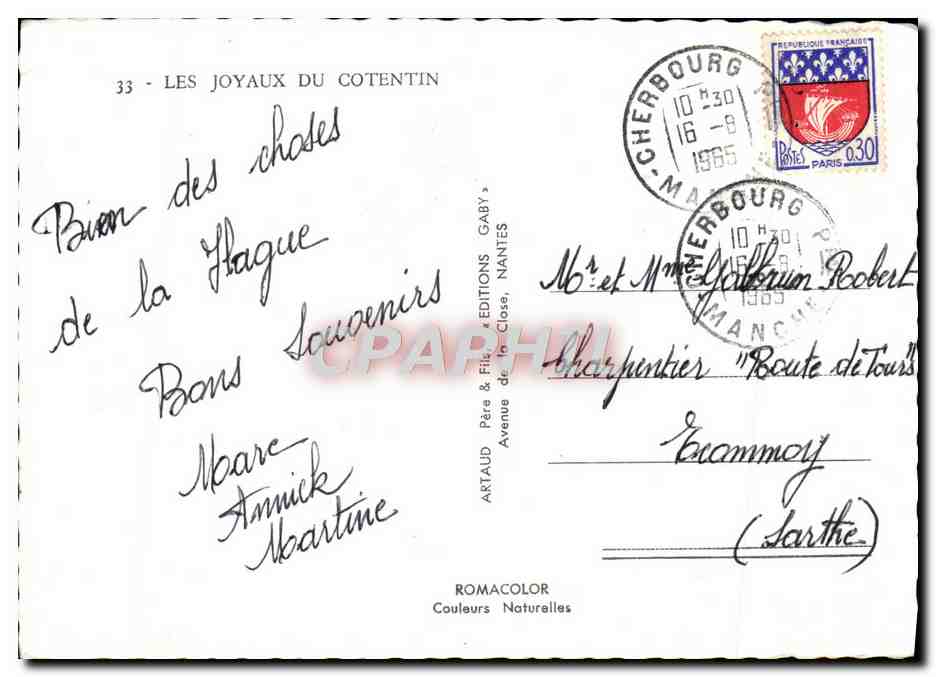 33 - LES JOYAUX DU COTENTIN
Bien des choses
de la Hague
Bons Souvenirs
Marc
Annick
Martine
ARTAUD Père & Fils, « EDITIONS GABY »
Avenue de la Close, NANTES
ROMACOLOR
Couleurs Naturelles
CHERBOURG
10 H 30
16 -8
1965
MANCHE
REPUBLIQUE FRANÇAISE
POSTES
PARIS
0,30
CHERBOURG
10 H 30
16 -8
1965
MANCHE
Mr et Mme Galbrun Robert
Charpentier "Route de Tours"
Ecommoy
(Sarthe)
CPAPHIL